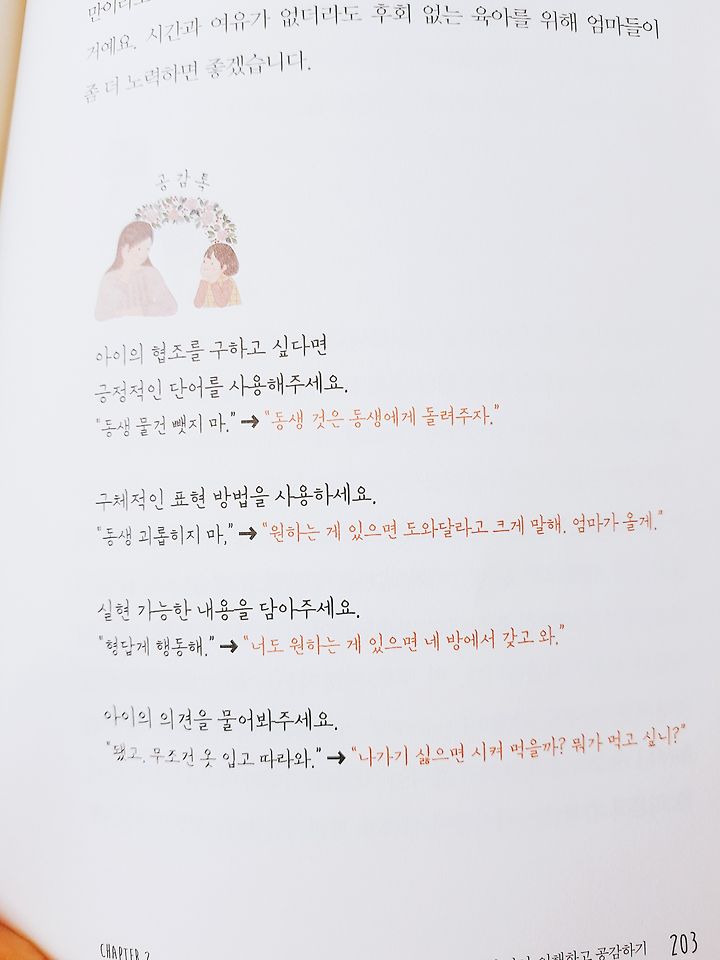 거예요. 시간과 여유가 없더라도 후회 없는 육아를 위해 엄마들이
좀 더 노력하면 좋겠습니다.
공감톡
아이의 협조를 구하고 싶다면
긍정적인 단어를 사용해주세요.
"동생 물건 뺏지 마." → "동생 것은 동생에게 돌려주자."
구체적인 표현 방법을 사용하세요.
"동생 괴롭히지 마," → "원하는 게 있으면 도와달라고 크게 말해. 엄마가 올게."
실현 가능한 내용을 담아주세요.
"형답게 행동해." → "너도 원하는 게 있으면 네 방에서 갖고 와."
아이의 의견을 물어봐주세요.
"됐고. 무조건 옷 입고 따라와." → "나가기 싫으면 시켜 먹을까? 뭐가 먹고 싶니?"
CHAPTER 2 이해하고 공감하기 203